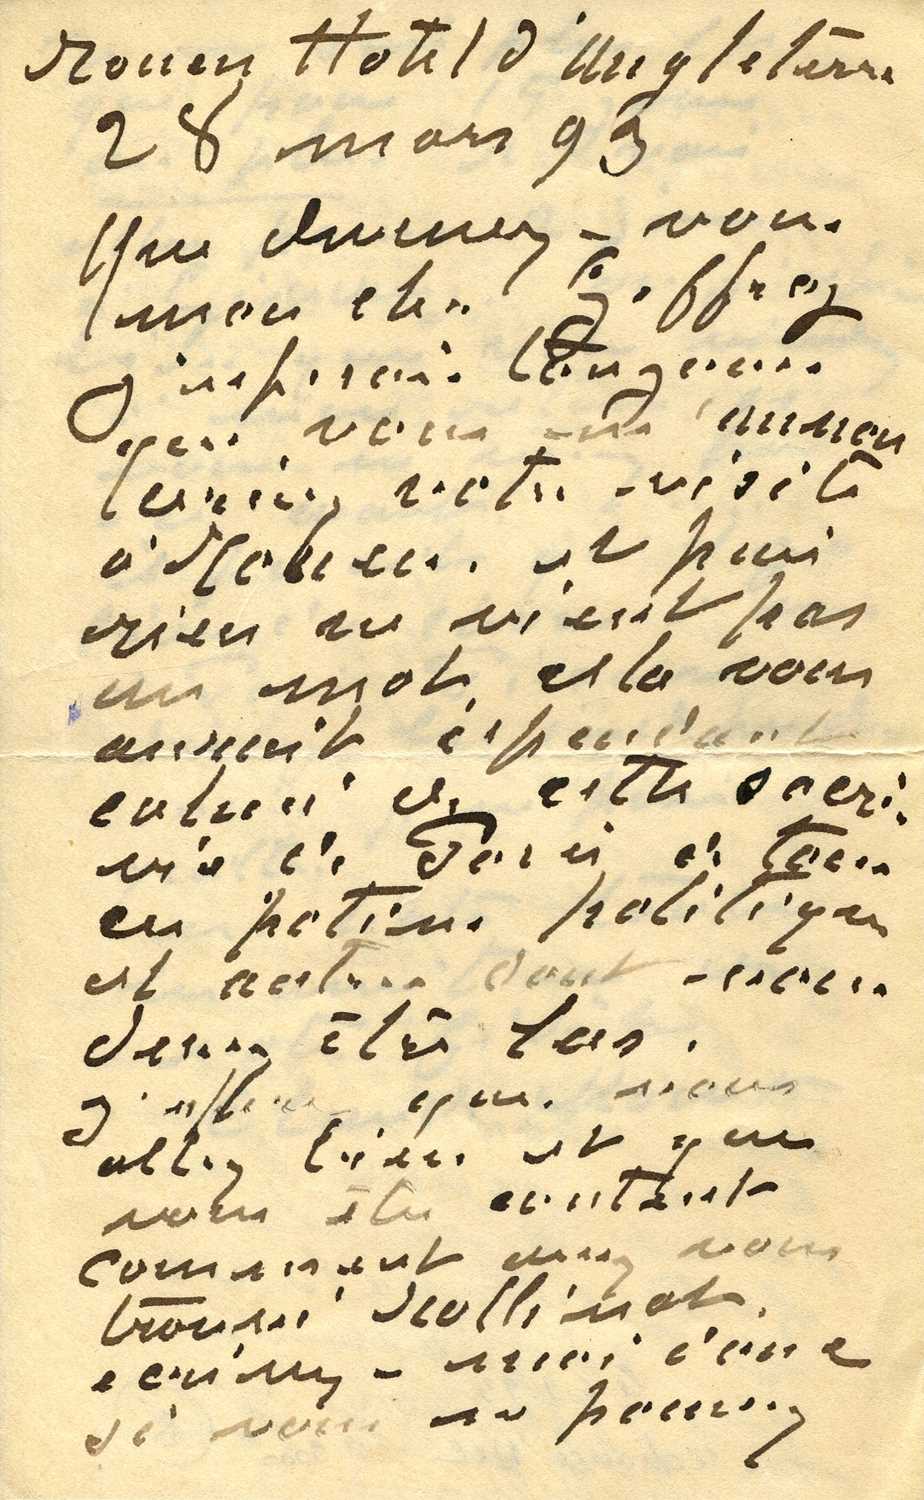 Rouen Hotel d'Angleterre
28 mars 93
Que devenez-vous
mon cher Geffroy
j'espérais toujours
que vous m'annon
ceriez votre visite
à Rouen. et puis
rien ne vient pas
un mot, cela vous
ennuit cependant
de cette
de Paris de tous
ces potins politiques
et autres dont vous
devez être las.
j'espère que vous
allez bien et que
vous êtes content
comment avez vous
trouvé Rollinat.
ecrivez-moi donc
si vous ne pouvez